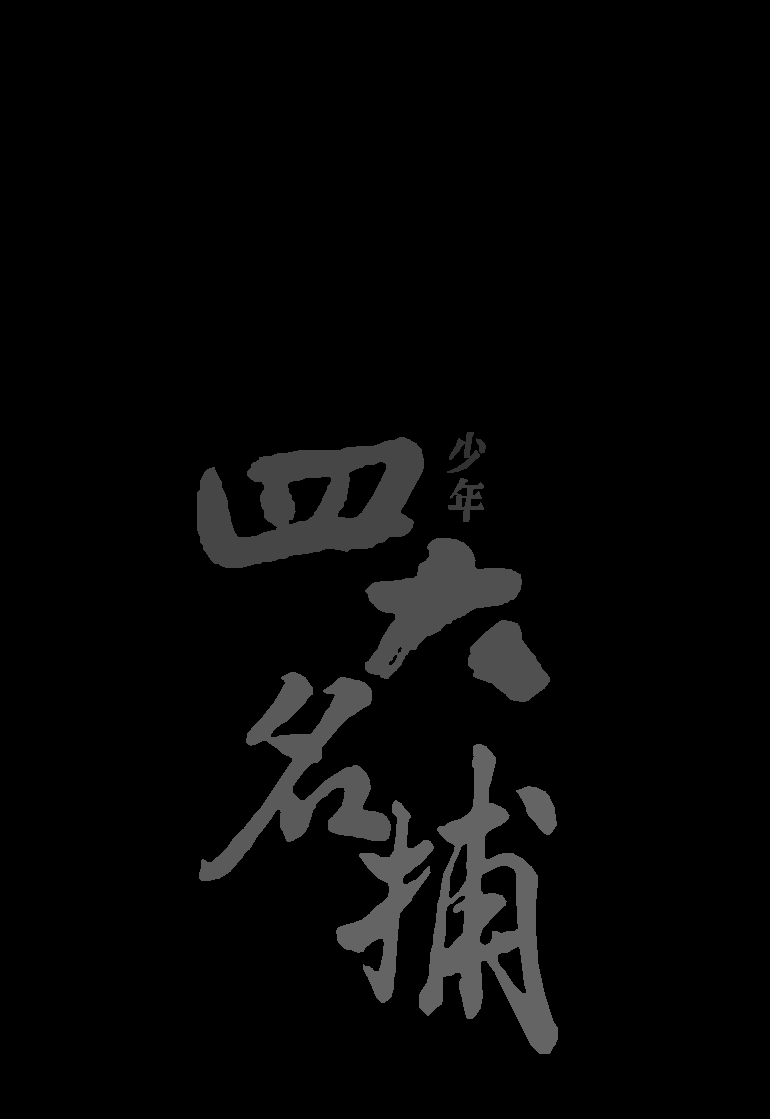 少年
四大名捕